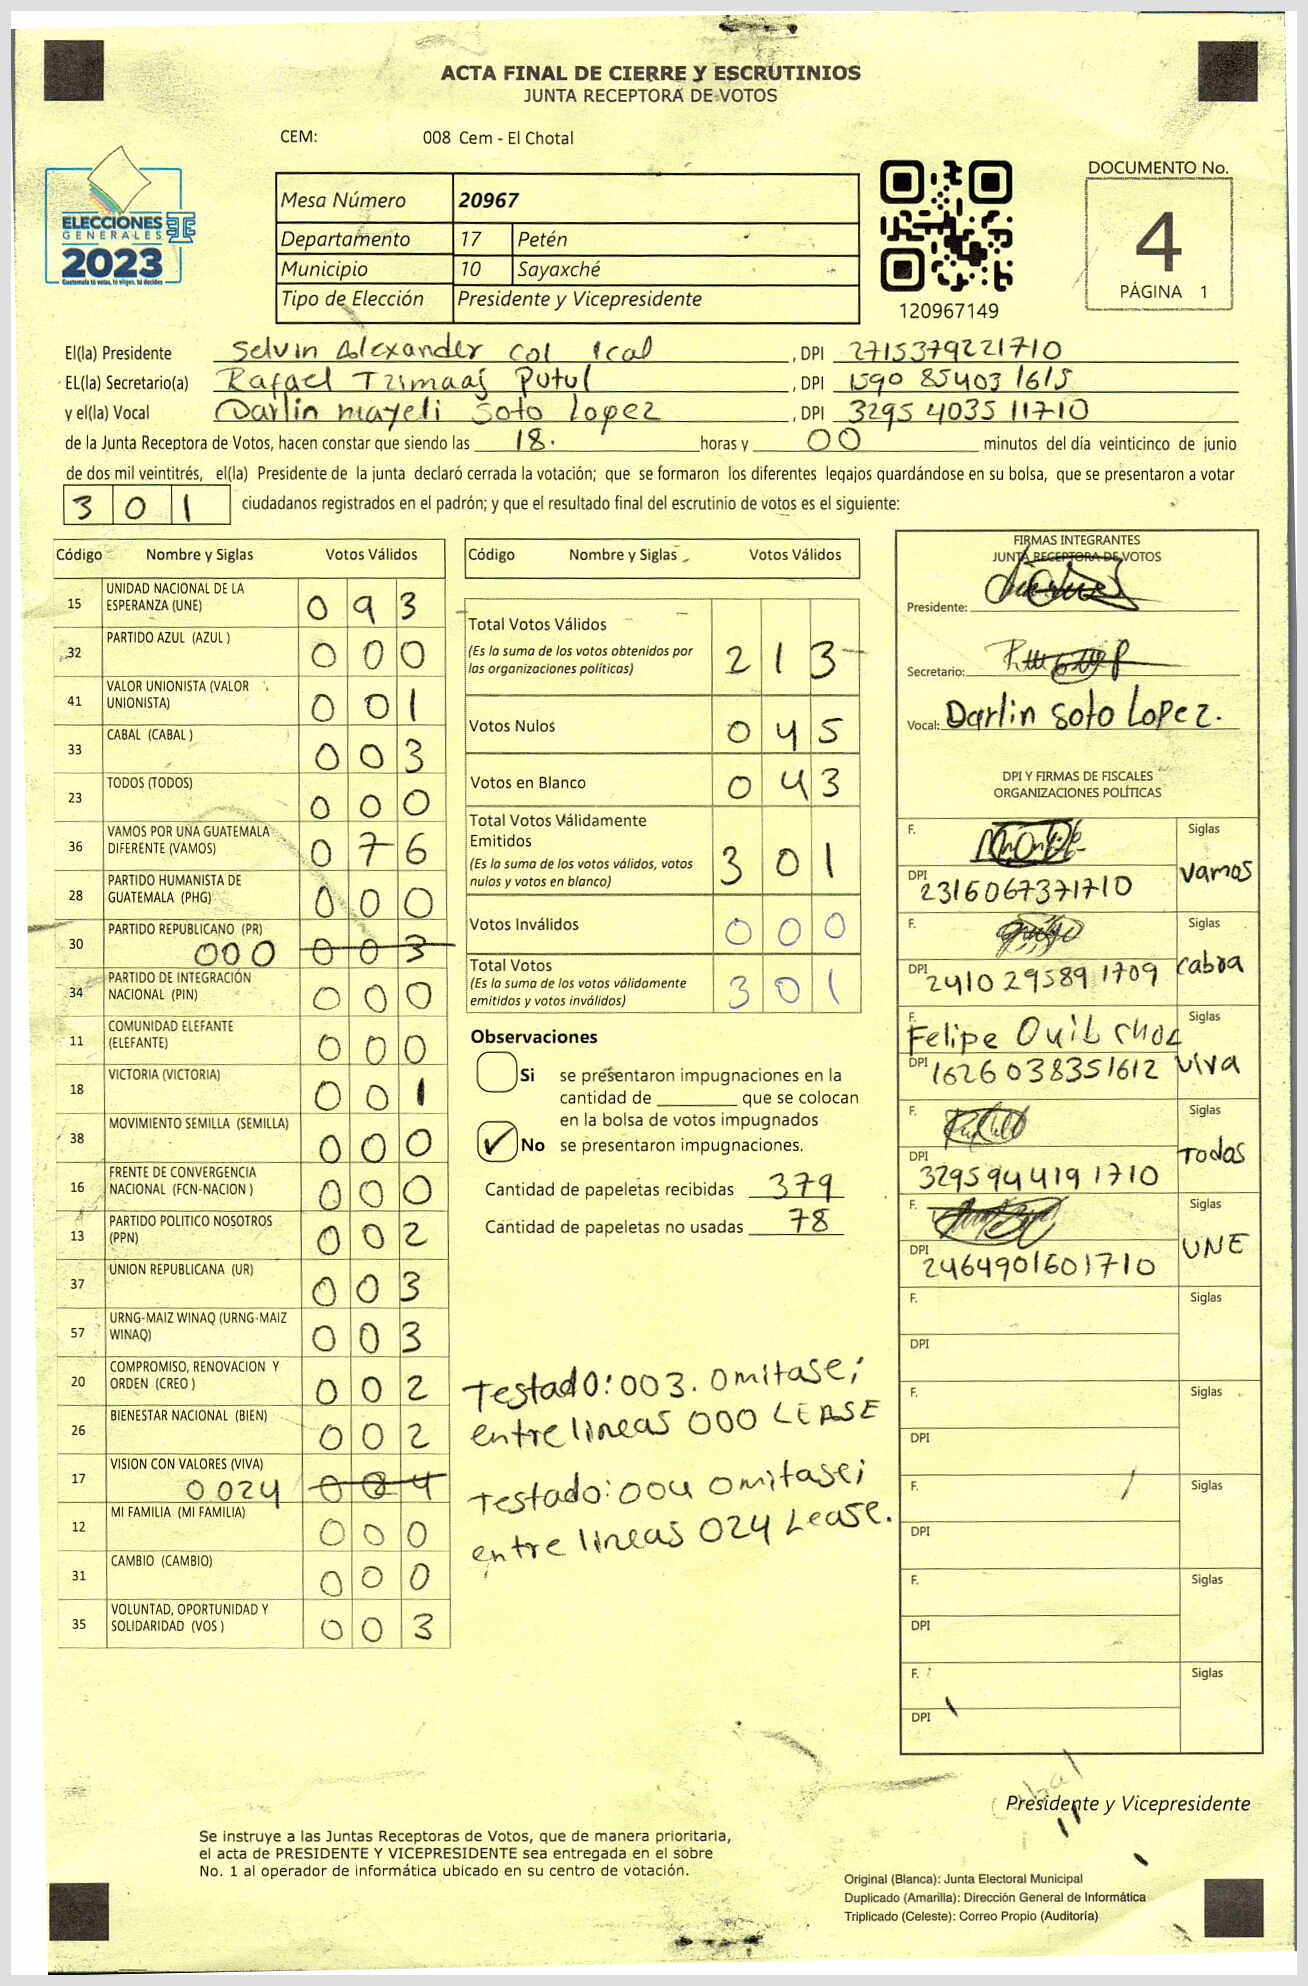 ACTA FINAL DE CIERRE Y ESCRUTINIOS
JUNTA RECEPTORA DE VOTOS
CEM: 008 Cem - El Chotal
ELECCIONES
GENERALES
2023
Guatemala tú votas, tú eliges, tú decides
Mesa Número 20967
Departamento 17 Petén
Municipio 10 Sayaxché
Tipo de Elección Presidente y Vicepresidente
120967149
DOCUMENTO No.
4
PÁGINA 1
El(la) Presidente Selvin Alexander Col Ical , DPI 2715379221710
EL(la) Secretario(a) Rafael Tzimaaj Putul , DPI 1590 85403 1615
y el(la) Vocal Darlin mayeli Soto Lopez , DPI 3295 4035 11710
de la Junta Receptora de Votos, hacen constar que siendo las 18. horas y 00 minutos del día veinticinco de junio
de dos mil veintitrés, el(la) Presidente de la junta declaró cerrada la votación; que se formaron los diferentes legajos guardándose en su bolsa, que se presentaron a votar
301 ciudadanos registrados en el padrón; y que el resultado final del escrutinio de votos es el siguiente:
Código Nombre y Siglas Votos Válidos
15 UNIDAD NACIONAL DE LA
ESPERANZA (UNE) 093
32 PARTIDO AZUL (AZUL ) 000
41 VALOR UNIONISTA (VALOR
UNIONISTA) 001
33 CABAL (CABAL ) 003
23 TODOS (TODOS) 000
36 VAMOS POR UNA GUATEMALA
DIFERENTE (VAMOS) 076
28 PARTIDO HUMANISTA DE
GUATEMALA (PHG) 000
30 PARTIDO REPUBLICANO (PR)
000 003
34 PARTIDO DE INTEGRACIÓN
NACIONAL (PIN) 000
11 COMUNIDAD ELEFANTE
(ELEFANTE) 000
18 VICTORIA (VICTORIA) 001
38 MOVIMIENTO SEMILLA (SEMILLA) 000
16 FRENTE DE CONVERGENCIA
NACIONAL (FCN-NACION ) 000
13 PARTIDO POLITICO NOSOTROS
(PPN) 002
37 UNION REPUBLICANA (UR) 003
57 URNG-MAIZ WINAQ (URNG-MAIZ
WINAQ) 003
20 COMPROMISO, RENOVACION Y
ORDEN (CREO ) 002
26 BIENESTAR NACIONAL (BIEN) 002
17 VISION CON VALORES (VIVA)
0024 004
12 MI FAMILIA (MI FAMILIA) 000
31 CAMBIO (CAMBIO) 000
35 VOLUNTAD, OPORTUNIDAD Y
SOLIDARIDAD (VOS ) 003
Código Nombre y Siglas Votos Válidos
Total Votos Válidos
(Es la suma de los votos obtenidos por
las organizaciones políticas) 213
Votos Nulos 045
Votos en Blanco 043
Total Votos Válidamente
Emitidos
(Es la suma de los votos válidos, votos
nulos y votos en blanco) 301
Votos Inválidos 000
Total Votos
(Es la suma de los votos válidamente
emitidos y votos inválidos) 301
Observaciones
Si se presentaron impugnaciones en la
cantidad de ________ que se colocan
en la bolsa de votos impugnados
No se presentaron impugnaciones.
Cantidad de papeletas recibidas 379
Cantidad de papeletas no usadas 78
Testado: 003. Omitase;
entre lineas 000 LEASE
Testado: 004 Omitase;
entre lineas 024 Lease.
FIRMAS INTEGRANTES
JUNTA RECEPTORA DE VOTOS
Presidente:
Secretario:
Vocal: Darlin Soto Lopez.
DPI Y FIRMAS DE FISCALES
ORGANIZACIONES POLÍTICAS
F. Siglas
DPI 2316067371710 vamos
F. Siglas
DPI 2410 29589 1709 Cabra
F. Felipe Quib Choc Siglas
DPI 1626 038351612 Viva
F. Siglas
DPI 3295944191710 Todos
F. Siglas
DPI 2464901601710 UNE
F. Siglas
DPI
F. Siglas
DPI
F. Siglas
DPI
F. Siglas
DPI
F. Siglas
DPI
Presidente y Vicepresidente
Se instruye a las Juntas Receptoras de Votos, que de manera prioritaria,
el acta de PRESIDENTE Y VICEPRESIDENTE sea entregada en el sobre
No. 1 al operador de informática ubicado en su centro de votación.
Original (Blanca): Junta Electoral Municipal
Duplicado (Amarilla): Dirección General de Informática
Triplicado (Celeste): Correo Propio (Auditoría)